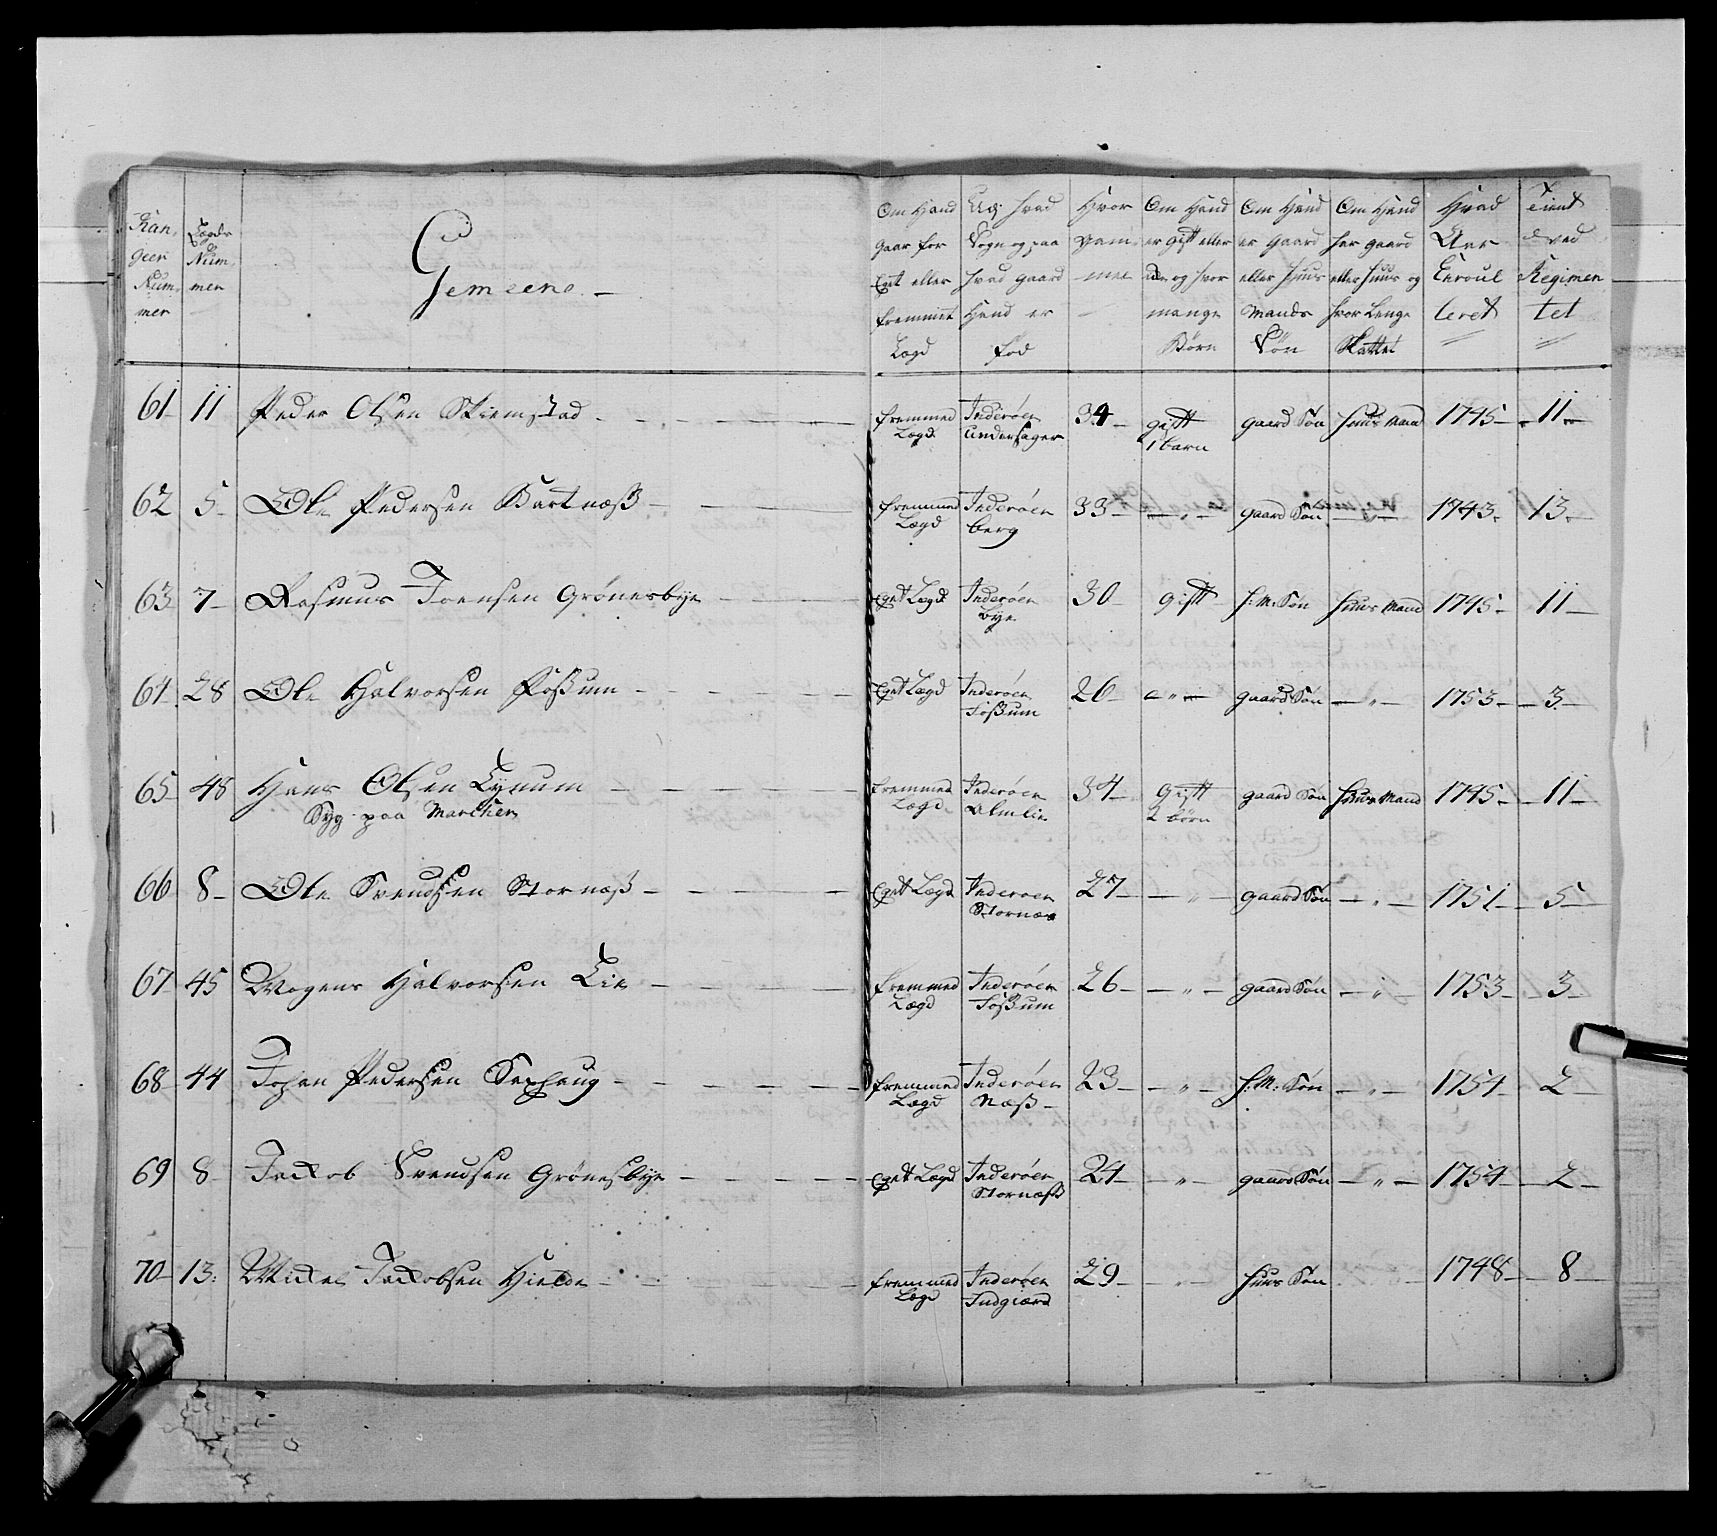 Ran,
geer
Num,
mer
Lægds
Num,
mer
Gemeene.
Om Hand
gaar for
Eget eller
fremmet
Lægd
Udi hvad
Sogn og paa
hvad gaard
Hand er
fød
Hvor
gam,
mel
Om Hand
er gift eller
ey og hvor
mange
Børn
Om Hand
er Gaard
eller Huus
Mands
Søn
Om Hand
har gaard
eller Huus og
hvor Længe
Skattet
Hvad
Aar
Enroul
leret
Tient
ved
Regimen,
tet
61 11 Peder Olsen Skiemstad fremmed Lægd Inderøen Undersager 34 gift 1 barn gaard Søn Huus Mand 1745 11
62 5 Ole Pedersen Kartnæß fremmed Lægd Inderøen berg 33 " gaard Søn " 1743 13
63 7 Rasmus Joensen Grønesbye Eget Lægd Inderøen bye 30 gift H: M: Søn Huus Mand 1745 11
64 28 Ole Halvorsen Foßum Eget Lægd Inderøen Foßum 26 " gaard Søn " 1753 3
65 48 Hans Olsen Lynum fremmed Lægd Inderøen Almlie 34 Gift 2 børn gaard Søn Huus Mand 1745 11
Syg paa Marchen
66 8 Ole Svendsen Stornæß Eget Lægd Inderøen Stornæs 27 " gaard Søn " 1751 5
67 45 Mogens Halvorsen Lie fremmed Lægd Inderøen Foßum 26 " gaard Søn " 1753 3
68 44 Johan Pedersen Saxhaug fremmed Lægd Inderøen Næß 23 " H: M: Søn " 1754 2
69 8 Jackob Svendsen Grønesbye Eget Lægd Inderøen Stornæß 24 " gaard Søn " 1754 2
70 13 Mickel Jackobsen Hielde fremmed Lægd Inderøen Indgiærd 29 Huus Søn 1748 8